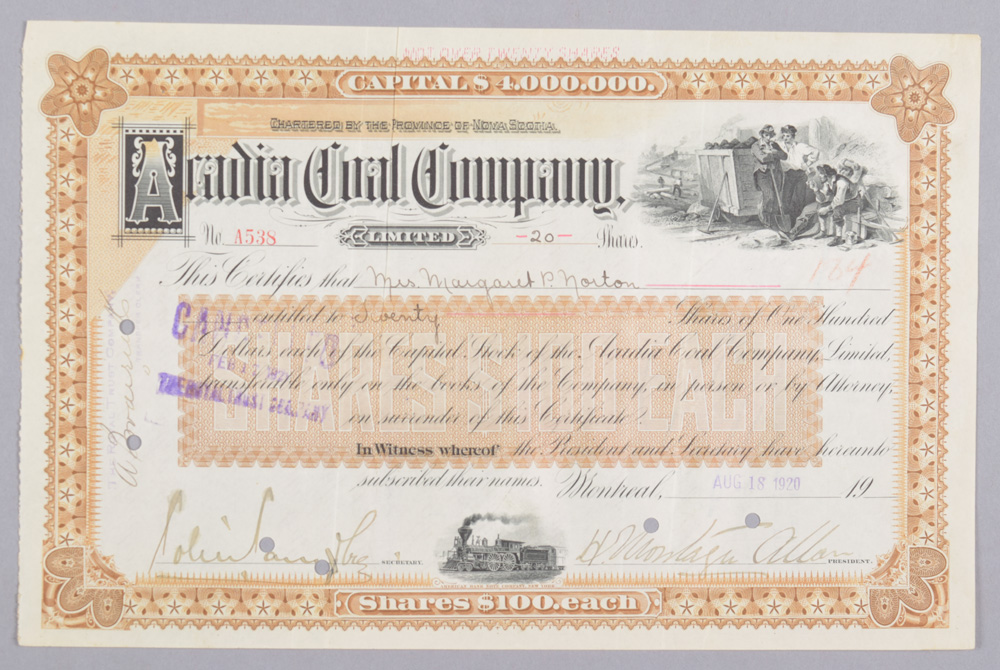 NOT OVER TWENTY SHARES
CAPITAL $4,000,000.
CHARTERED BY THE PROVINCE OF NOVA SCOTIA.
Acadia Coal Company,
No. A538 LIMITED -20- Shares.
This Certifies that Mrs. Margaret P. Norton
entitled to Twenty Shares of One Hundred
Dollars each of the Capital Stock of the Acadia Coal Company, Limited,
transferable only on the books of the Company, in person or by Attorney,
on surrender of this Certificate.
In Witness whereof the President and Secretary have hereunto
subscribed their names. Montreal, AUG 18 1920 19
SHARES $100 EACH
THE ROYAL TRUST COMPANY
SECRETARY.
H Montagu Allan PRESIDENT.
AMERICAN BANK NOTE COMPANY, NEW YORK.
Shares $100. each